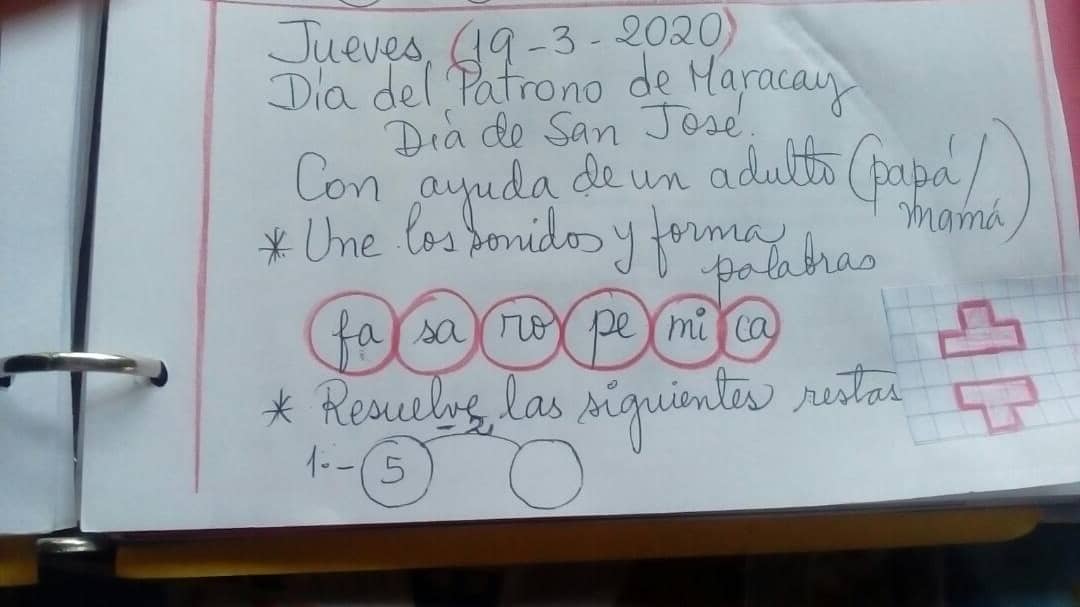 Jueves, (19-3-2020)
Día del Patrono de Maracay
Día de San José.
Con ayuda de un adulto (papá/
mamá)
* Une los sonidos y forma
palabras
fa sa ro pe mi ca
* Resuelve las siguientes restas
-2
1.- 5